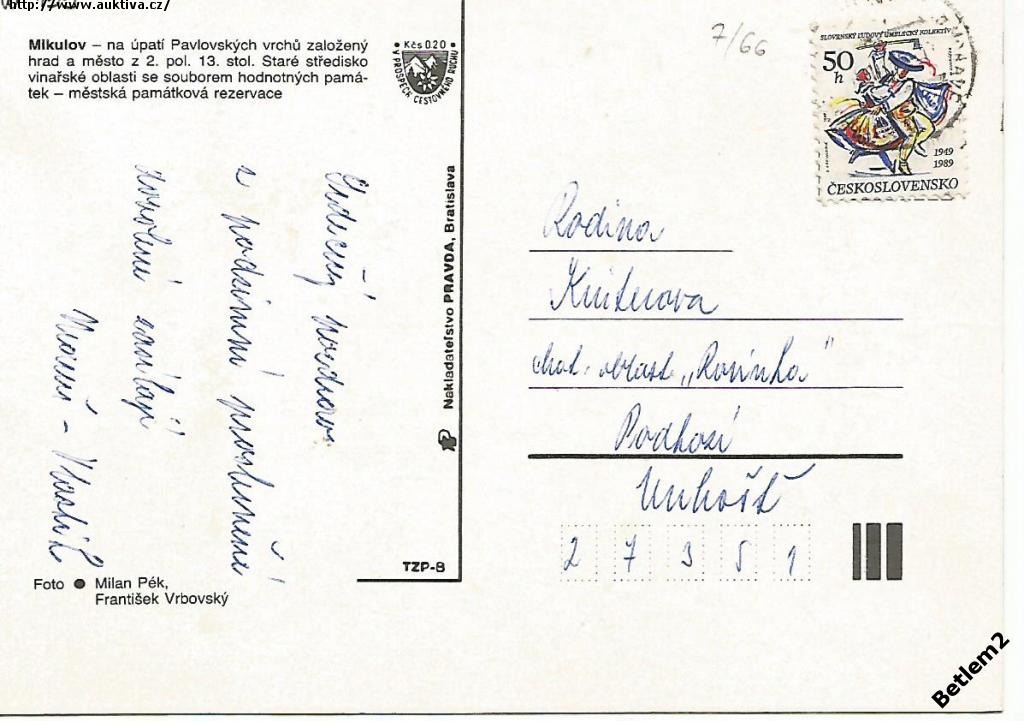 http://www.auktiva.cz/
Mikulov – na úpatí Pavlovských vrchů založený
hrad a město z 2. pol. 13. stol. Staré středisko
vinařské oblasti se souborem hodnotných pamá-
tek – městská památková rezervace
• Kčs 0.20 •
V PROSPĚCH CESTOVNÉHO RUCHU
7/66
SLOVENSKÝ ĽUDOVÝ UMELECKÝ KOLEKTÍV
50
h
1949
1989
ČESKOSLOVENSKO
Srdečný pozdrav
z podzimní
zasílají
Vlastík
Nakladateľstvo PRAVDA, Bratislava
TZP-8
Rodina
chat. oblast „Rovinka"
Podkozí
Unhošť
2 7 3 5 1
Foto ● Milan Pék,
František Vrbovský
Betlem2